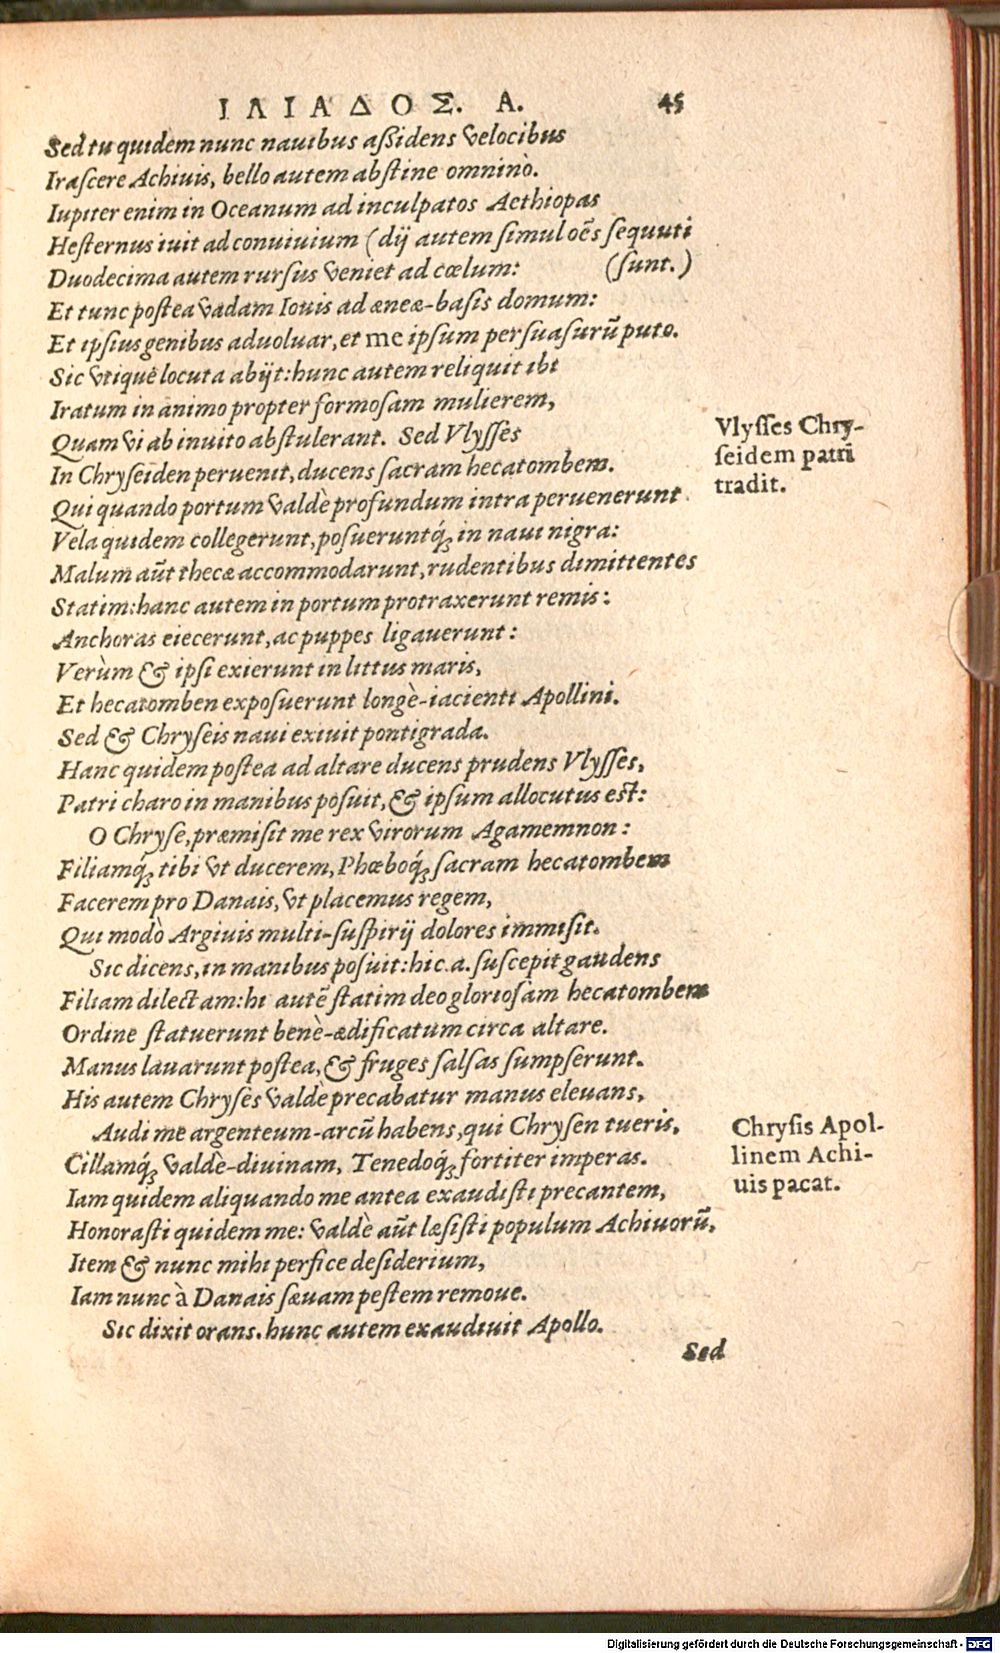 ΙΛΙΑΔΟΣ. Α. 45
Sed tu quidem nunc nauibus aßidens velocibus
Irascere Achiuis, bello autem abstine omninò.
Iupiter enim in Oceanum ad inculpatos Aethiopas
Hesternus iuit ad conuiuium (dij autem simul oẽs sequuti
Duodecima autem rursus veniet ad cœlum: (sunt.)
Et tunc postea vadam Iouis ad æneæ-basis domum:
Et ipsius genibus aduoluar, et me ipsum persuasurũ puto.
Sic vtique locuta abijt: hunc autem reliquit ibi
Iratum in animo propter formosam mulierem,
Quam vi ab inuito abstulerant. Sed Vlysses
Vlysses Chry-
seidem patri
tradit.
In Chryseiden peruenit, ducens sacram hecatombem.
Qui quando portum valdè profundum intra peruenerunt
Vela quidem collegerunt, posueruntq́; in naui nigra:
Malum aũt thecæ accommodarunt, rudentibus dimittentes
Statim: hanc autem in portum protraxerunt remis:
Anchoras eiecerunt, ac puppes ligauerunt:
Verùm & ipsi exierunt in littus maris,
Et hecatomben exposuerunt longè-iacienti Apollini.
Sed & Chryseis naui exiuit pontigrada.
Hanc quidem postea ad altare ducens prudens Vlysses,
Patri charo in manibus posuit, & ipsum allocutus est:
O Chryse, præmisit me rex virorum Agamemnon:
Filiamq́; tibi vt ducerem, Phœboq́; sacram hecatombem
Facerem pro Danais, vt placemus regem,
Qui modò Argiuis multi-suspirij dolores immisit.
Sic dicens, in manibus posuit: hic.a. suscepit gaudens
Filiam dilectam: hi autẽ statim deo gloriosam hecatombem
Ordine statuerunt benè-ædificatum circa altare.
Manus lauarunt postea, & fruges salsas sumpserunt.
His autem Chryses valdè precabatur manus eleuans,
Audi me argenteum-arcũ habens, qui Chrysen tueris,
Chrysis Apol-
linem Achi-
uis pacat.
Cillamq́; valdè-diuinam, Tenedoq́; fortiter imperas.
Iam quidem aliquando me antea exaudisti precantem,
Honorasti quidem me: valdè aũt læsisti populum Achiuorũ,
Item & nunc mihi perfice desiderium,
Iam nunc à Danais sæuam pestem remoue.
Sic dixit orans. hunc autem exaudiuit Apollo.
Sed
Digitalisierung gefördert durch die Deutsche Forschungsgemeinschaft - DFG